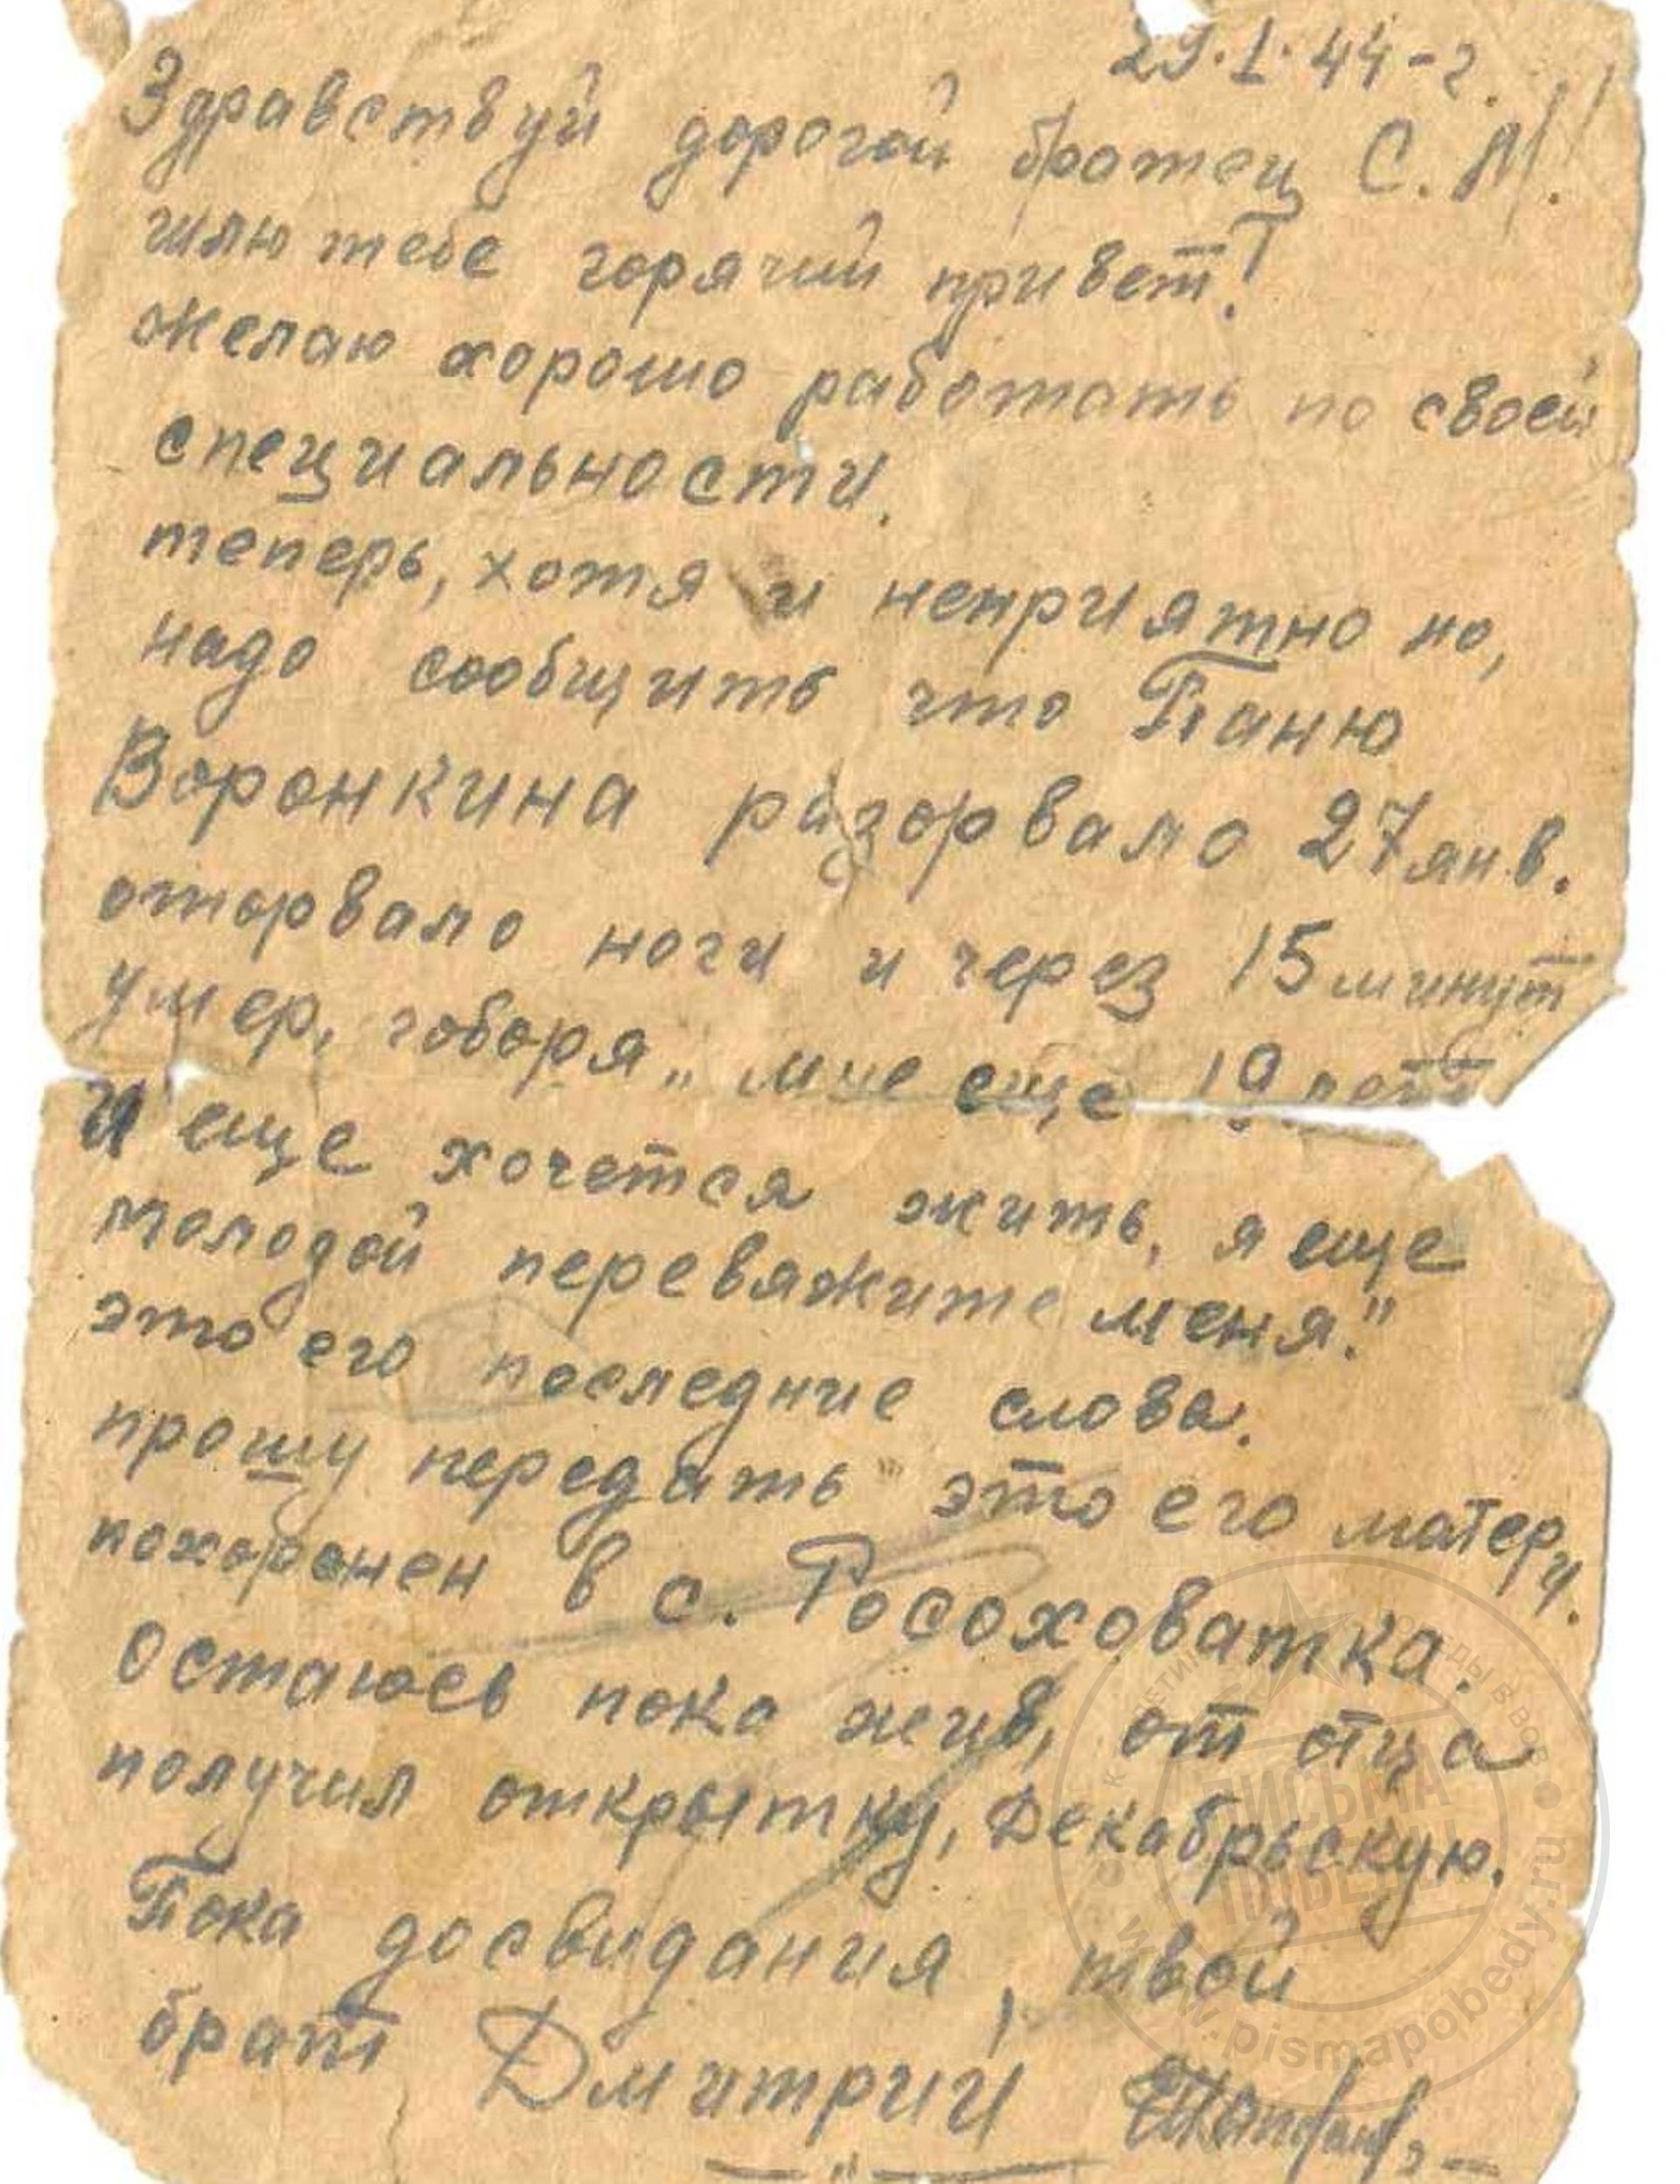 29.I.44-г.
Здравствуй дорогой братец С. М.!
шлю тебе горячий привет!
желаю хорошо работать по своей
специальности.
теперь, хотя и неприятно но,
надо сообщить что Паню
Воронкина разорвало 27 янв.
оторвало ноги и через 15 минут
умер, говоря „ мне еще 19 лет
и еще хочется жить, я еще
молодой перевяжите меня."
это его последние слова.
прошу передать это его матери.
похоронен в с. Росоховатка.
остаюсь пока жив, от отца
получил открытку, Декабрьскую.
Пока досвидания, твой
брат Дмитрий
ПИСЬМА
ПОБЕДЫ
www.pismapobedy.ru